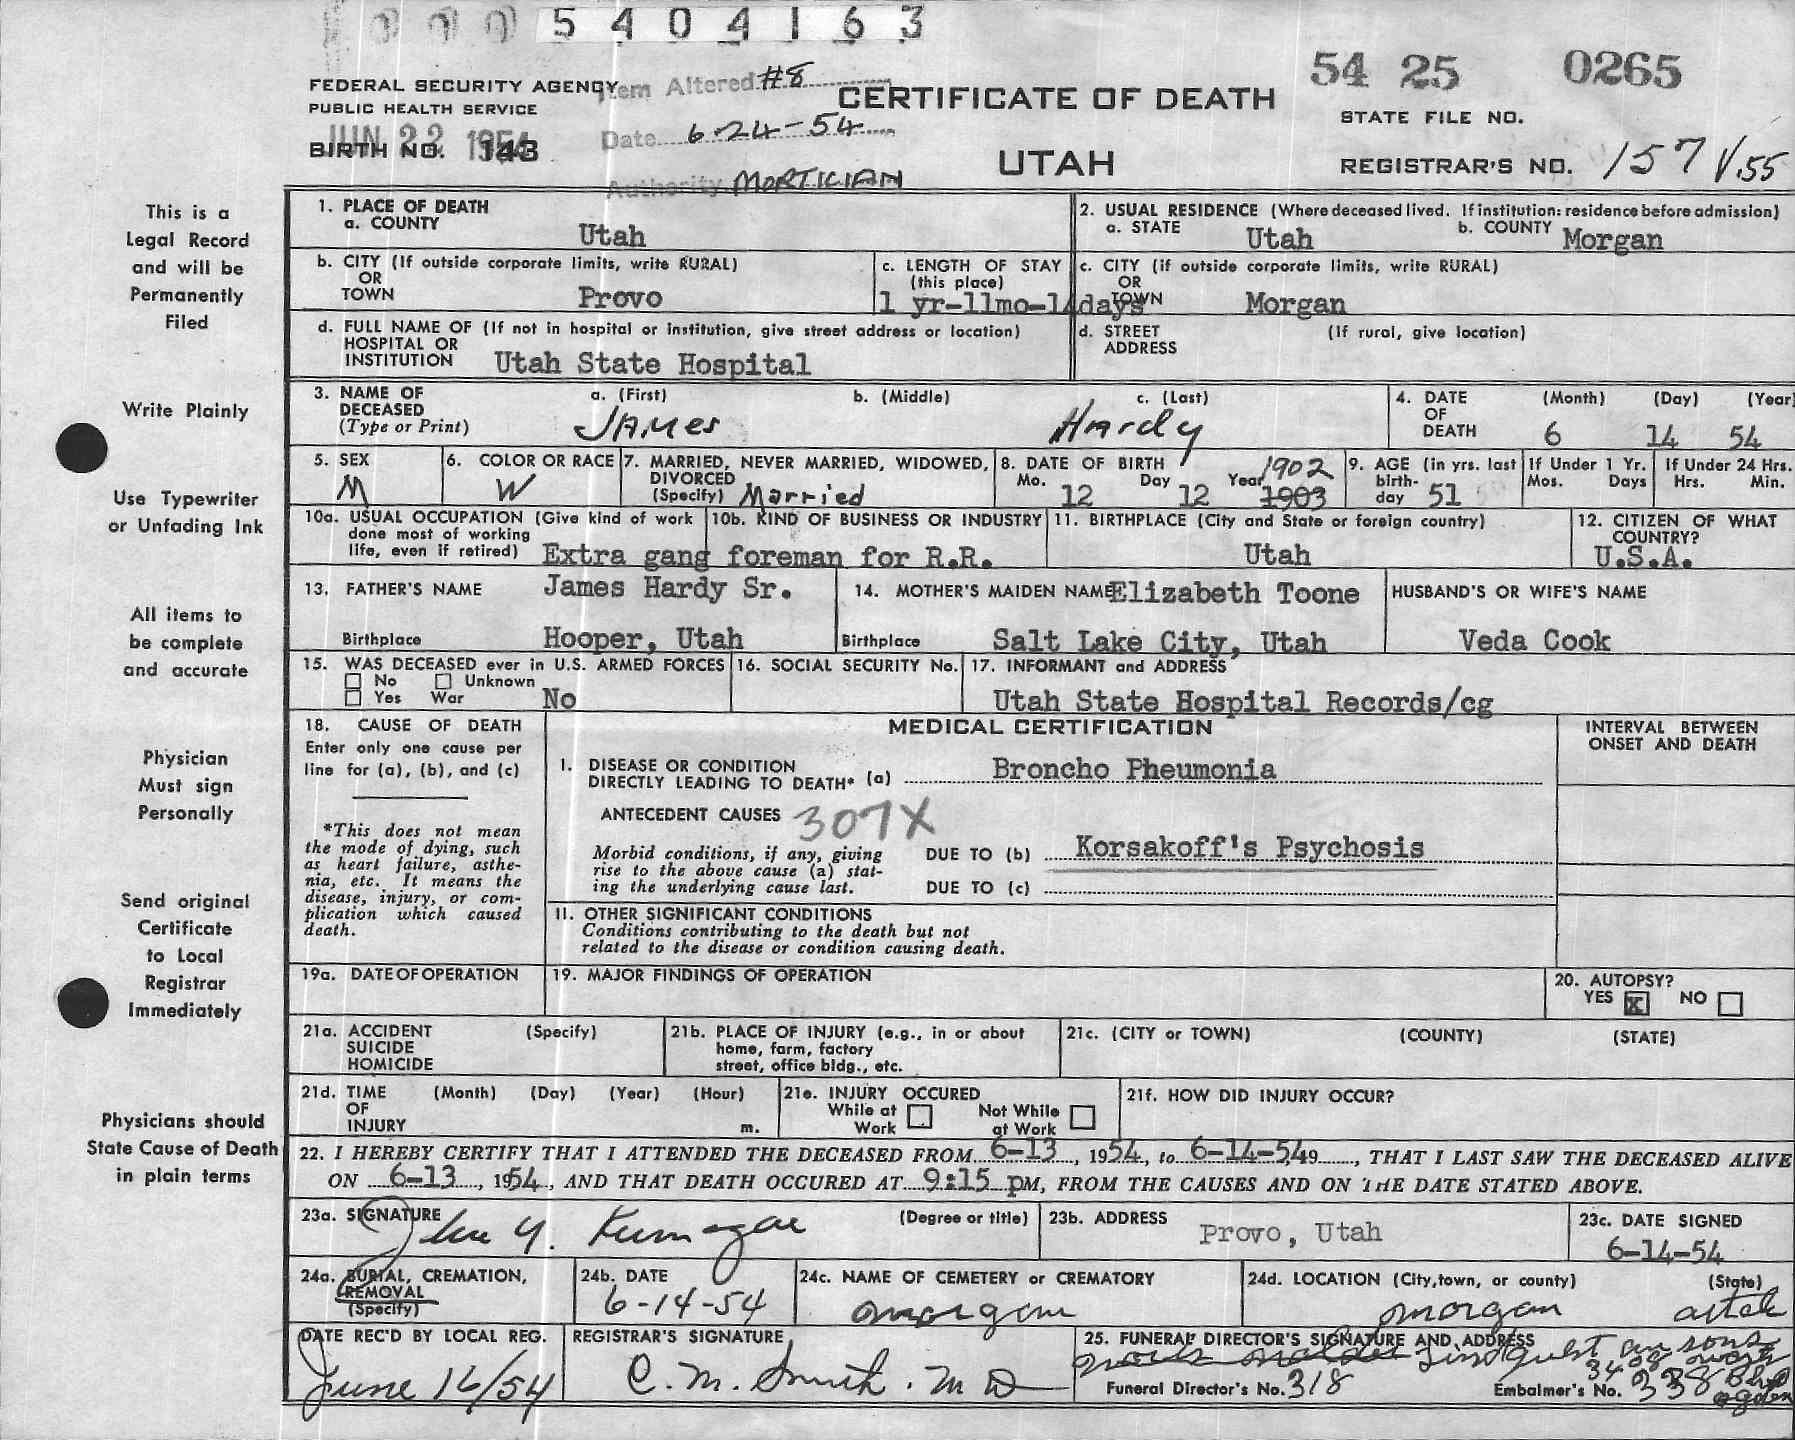 5404163
54 25 0265
FEDERAL SECURITY AGENCY
PUBLIC HEALTH SERVICE
Item Altered #8
CERTIFICATE OF DEATH
STATE FILE NO.
JUN 22 1954
BIRTH NO. 143
Date 6-24-54
UTAH
REGISTRAR'S NO. 157 V.55
Authority MORTICIAN
This is a
Legal Record
and will be
Permanently
Filed
Write Plainly
Use Typewriter
or Unfading Ink
All items to
be complete
and accurate
Physician
Must sign
Personally
Send original
Certificate
to Local
Registrar
Immediately
Physicians should
State Cause of Death
in plain terms
1. PLACE OF DEATH
a. COUNTY Utah
2. USUAL RESIDENCE (Where deceased lived. If institution: residence before admission)
a. STATE Utah b. COUNTY Morgan
b. CITY (If outside corporate limits, write RURAL)
OR
TOWN Provo
c. LENGTH OF STAY
(this place)
1 yr-11mo-14days
c. CITY (if outside corporate limits, write RURAL)
OR
TOWN Morgan
d. FULL NAME OF (If not in hospital or institution, give street address or location)
HOSPITAL OR
INSTITUTION Utah State Hospital
d. STREET (If rural, give location)
ADDRESS
3. NAME OF a. (First) b. (Middle) c. (Last)
DECEASED
(Type or Print) JAMES Hardy
4. DATE (Month) (Day) (Year)
OF
DEATH 6 14 54
5. SEX
M
6. COLOR OR RACE
W
7. MARRIED, NEVER MARRIED, WIDOWED,
DIVORCED
(Specify) Married
8. DATE OF BIRTH 1902
Mo. 12 Day 12 Year 1903
9. AGE (in yrs. last
birth-
day 51
If Under 1 Yr.
Mos. Days
If Under 24 Hrs.
Hrs. Min.
10a. USUAL OCCUPATION (Give kind of work
done most of working
life, even if retired) Extra gang foreman for R.R.
10b. KIND OF BUSINESS OR INDUSTRY
11. BIRTHPLACE (City and State or foreign country)
Utah
12. CITIZEN OF WHAT
COUNTRY?
U.S.A.
13. FATHER'S NAME James Hardy Sr.
Birthplace Hooper, Utah
14. MOTHER'S MAIDEN NAME Elizabeth Toone
Birthplace Salt Lake City, Utah
HUSBAND'S OR WIFE'S NAME
Veda Cook
15. WAS DECEASED ever in U.S. ARMED FORCES
No Unknown
Yes War No
16. SOCIAL SECURITY No.
17. INFORMANT and ADDRESS
Utah State Hospital Records/cg
18. CAUSE OF DEATH
Enter only one cause per
line for (a), (b), and (c)
*This does not mean
the mode of dying, such
as heart failure, asthe-
nia, etc. It means the
disease, injury, or com-
plication which caused
death.
MEDICAL CERTIFICATION
INTERVAL BETWEEN
ONSET AND DEATH
I. DISEASE OR CONDITION
DIRECTLY LEADING TO DEATH* (a) Broncho Pheumonia
ANTECEDENT CAUSES 307X
Morbid conditions, if any, giving
rise to the above cause (a) stat-
ing the underlying cause last.
DUE TO (b) Korsakoff's Psychosis
DUE TO (c)
II. OTHER SIGNIFICANT CONDITIONS
Conditions contributing to the death but not
related to the disease or condition causing death.
19a. DATE OF OPERATION
19. MAJOR FINDINGS OF OPERATION
20. AUTOPSY?
YES X NO
21a. ACCIDENT (Specify)
SUICIDE
HOMICIDE
21b. PLACE OF INJURY (e.g., in or about
home, farm, factory
street, office bldg., etc.
21c. (CITY or TOWN) (COUNTY) (STATE)
21d. TIME (Month) (Day) (Year) (Hour)
OF
INJURY m.
21e. INJURY OCCURED
While at Work Not While at Work
21f. HOW DID INJURY OCCUR?
22. I HEREBY CERTIFY THAT I ATTENDED THE DECEASED FROM 6-13, 1954, to 6-14-54, 19, THAT I LAST SAW THE DECEASED ALIVE
ON 6-13, 1954, AND THAT DEATH OCCURED AT 9:15 pM, FROM THE CAUSES AND ON THE DATE STATED ABOVE.
23a. SIGNATURE (Degree or title)
Y. Kumagai
23b. ADDRESS
Provo, Utah
23c. DATE SIGNED
6-14-54
24a. BURIAL, CREMATION,
REMOVAL
(Specify)
24b. DATE
6-14-54
24c. NAME OF CEMETERY or CREMATORY
Morgan
24d. LOCATION (City, town, or county) (State)
Morgan Utah
DATE REC'D BY LOCAL REG.
June 16/54
REGISTRAR'S SIGNATURE
C. M. Smith. MD
25. FUNERAL DIRECTOR'S SIGNATURE AND ADDRESS
Lindquist an sons
Funeral Director's No. 318
Embalmer's No. 338
Ogden